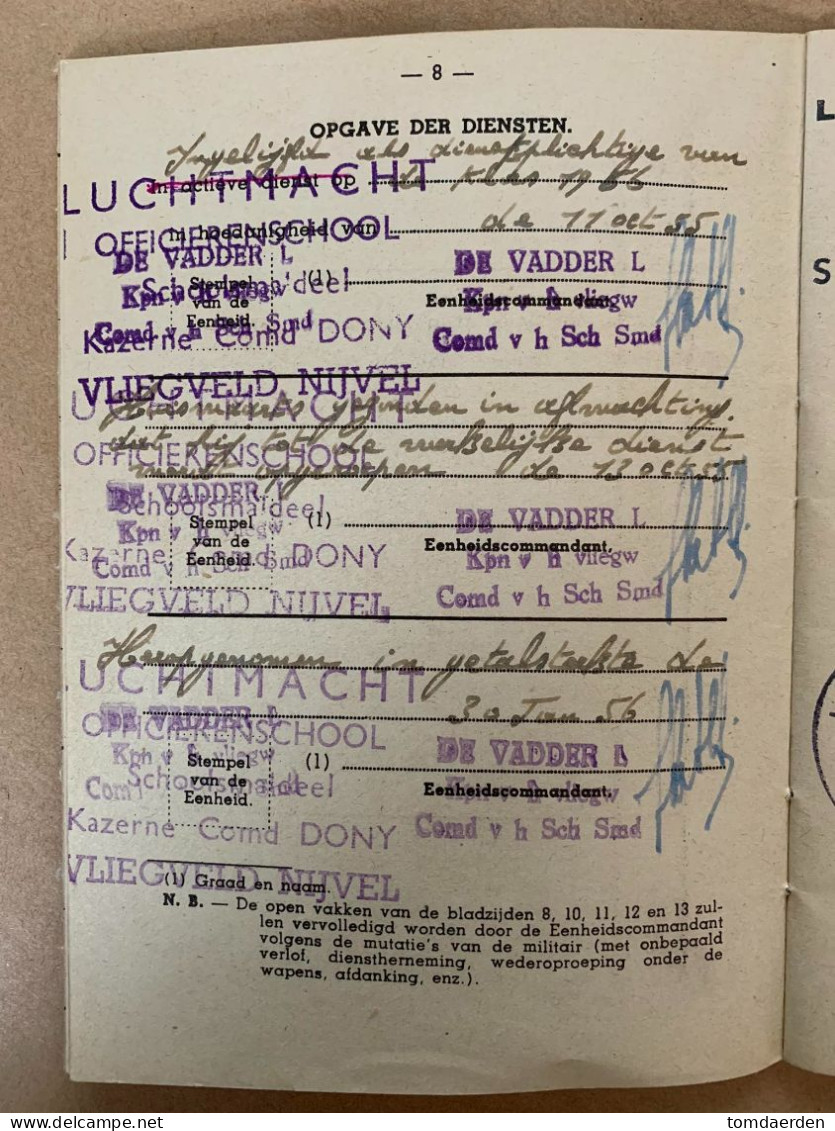 — 8 —
OPGAVE DER DIENSTEN.
Ingelijfd als dienstplichtige van
In actieve dienst op de klas 1956
LUCHTMACHT
In hoedanigheid van de 11 oct 55
OFFICIERENSCHOOL
DE VADDER L
DE VADDER L
Stempel
van de
Eenheid.
(1)
Schoolsmaldeel
Kpn v h vliegw
Eenheidscommandant.
Kpn v h vliegw
Comd v h Sch Smd
Comd v h Sch Smd
Kazerne Comd DONY
VLIEGVELD NIJVEL
Huiswaarts gezonden in afwachting
LUCHTMACHT
dat hij tot de werkelijke dienst
OFFICIERENSCHOOL
wordt opgeroepen de 13 oct 55
DE VADDER L
Schoolsmaldeel
DE VADDER L
Stempel
van de
Eenheid.
(1)
Kpn v h vliegw
Eenheidscommandant.
Kpn v h vliegw
Kazerne Comd DONY
Comd v h Sch Smd
Comd v h Sch Smd
VLIEGVELD NIJVEL
Heropgenomen in getalsterkte de
LUCHTMACHT
30 Jan 56
DE VADDER L
OFFICIERENSCHOOL
DE VADDER L
Kpn v h vliegw
Stempel
van de
Eenheid.
(1)
Schoolsmaldeel
Eenheidscommandant.
Kpn v h vliegw
Comd
Kazerne Comd DONY
Comd v h Sch Smd
VLIEGVELD NIJVEL
(1) Graad en naam.
N. B. — De open vakken van de bladzijden 8, 10, 11, 12 en 13 zul-
len vervolledigd worden door de Eenheidscommandant
volgens de mutatie's van de militair (met onbepaald
verlof, dienstherneming, wederoproeping onder de
wapens, afdanking, enz.).
L
S
delcampe.net
tomdaerden